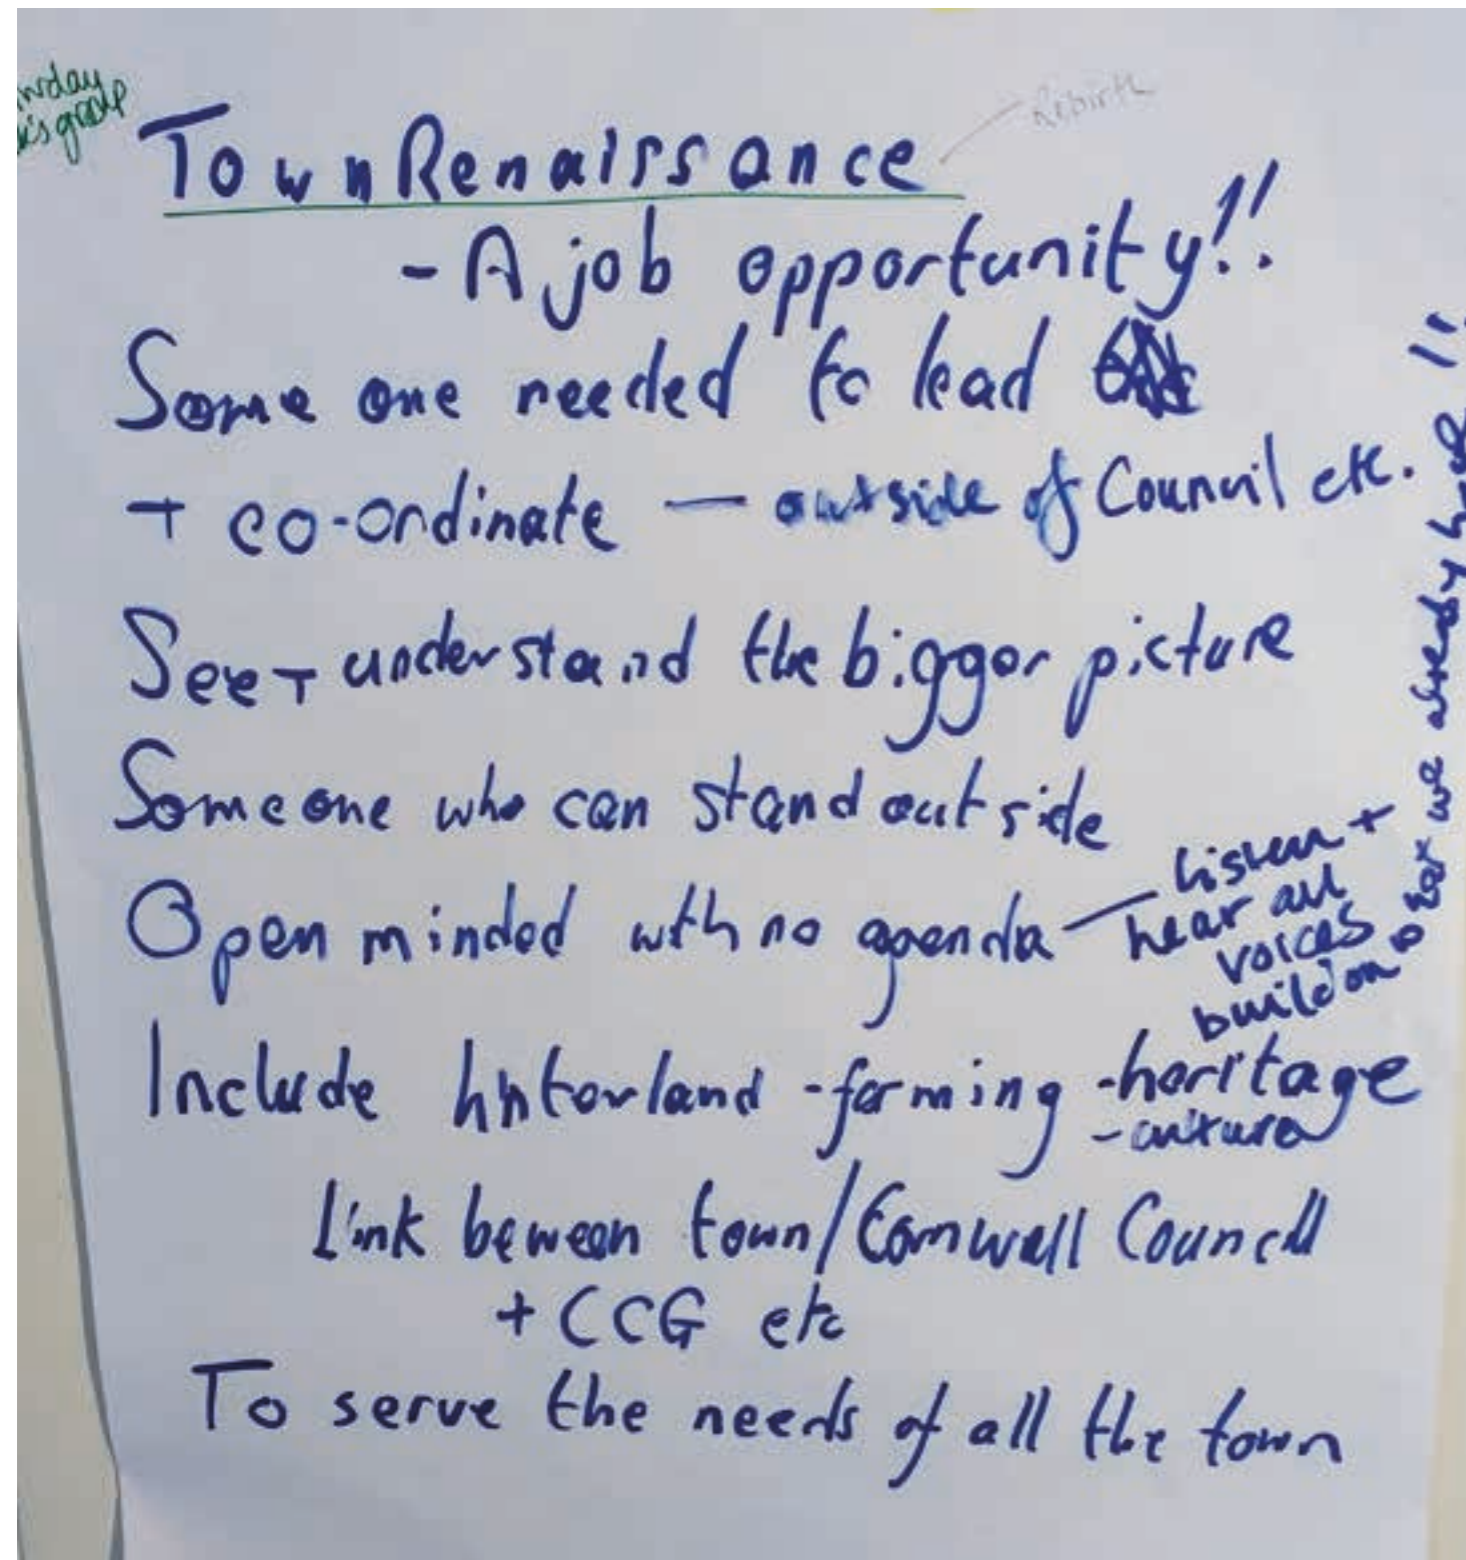 's group
Town Renaissance
Rebirth
- A job opportunity!!
Some one needed to lead
+ co-ordinate — outside of Council etc.
See + understand the bigger picture
Someone who can stand outside
Open minded with no agenda
listen +
hear all
voices
build on
we already have !!
Include hinterland - farming - heritage
- culture
Link beween town/Cornwall Council
+ CCG etc
To serve the needs of all the town